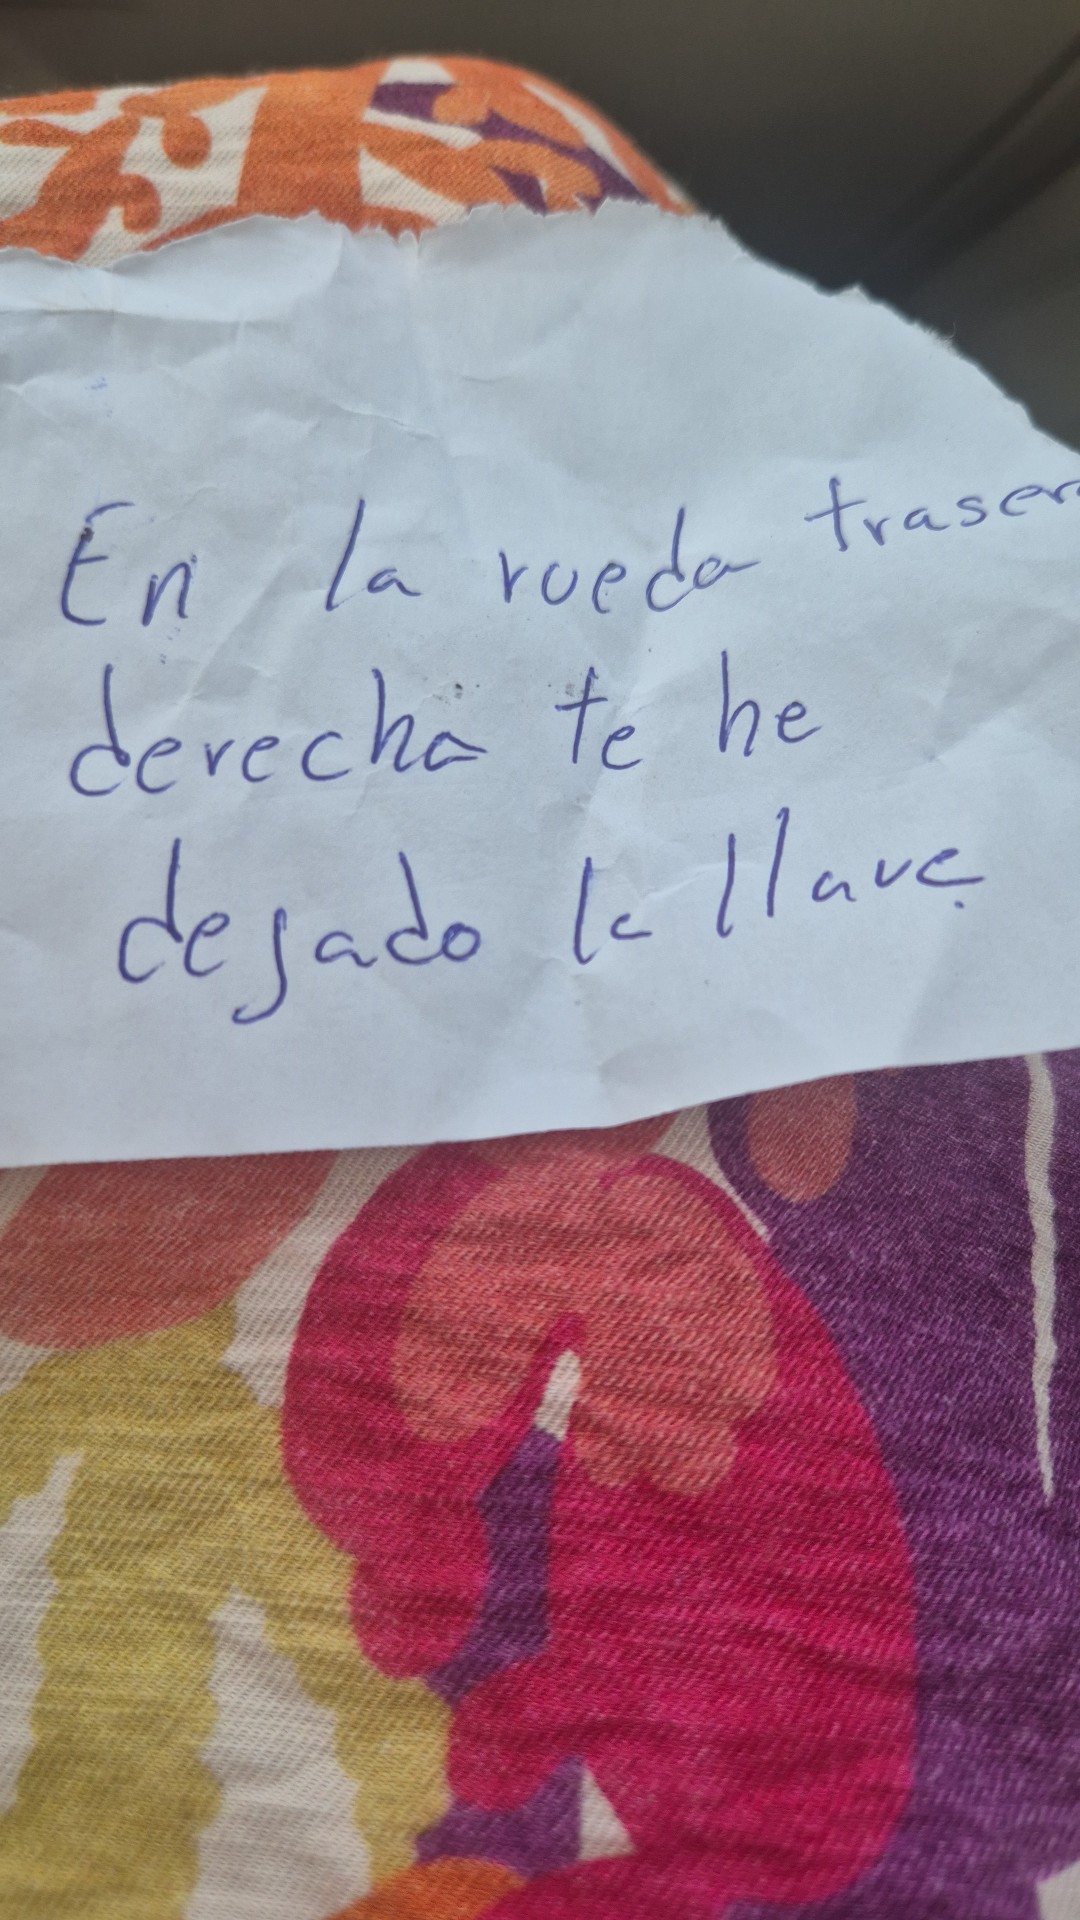 En la rueda traser
derecha te he
dejado la llave.